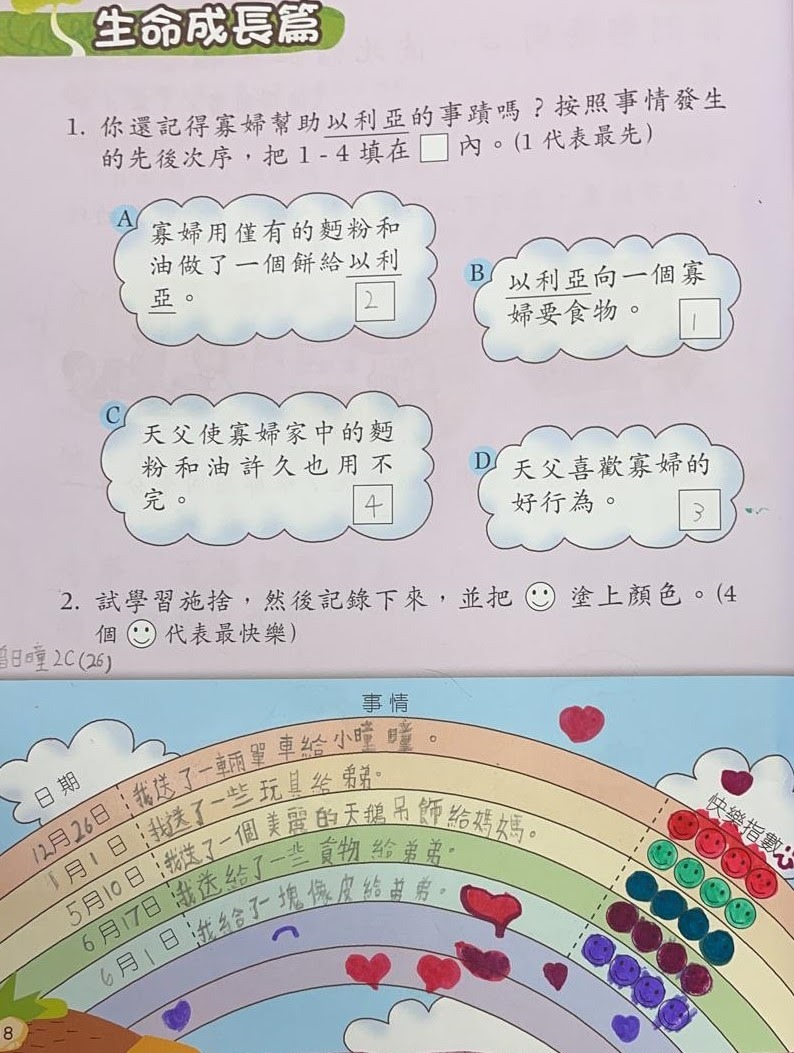 生命成長篇
1. 你還記得寡婦幫助以利亞的事蹟嗎？按照事情發生
的先後次序，把 1 - 4 填在 □ 內。(1 代表最先)
A
寡婦用僅有的麪粉和
油做了一個餅給以利
亞。
2
B
以利亞向一個寡
婦要食物。
1
C
天父使寡婦家中的麪
粉和油許久也用不
完。
4
D
天父喜歡寡婦的
好行為。
3
2. 試學習施捨，然後記錄下來，並把 ☺ 塗上顏色。(4
個 ☺ 代表最快樂)
日瞳 2C (26)
事情
日期
快樂指數
12月26日 我送了一輛單車給小瞳瞳。
1月1日 我送了一些玩具給弟弟。
5月10日 我送了一個美麗的天鵝吊飾給媽媽。
6月17日 我送給了一些食物給弟弟。
6月1日 我給了一塊橡皮給弟弟。
8